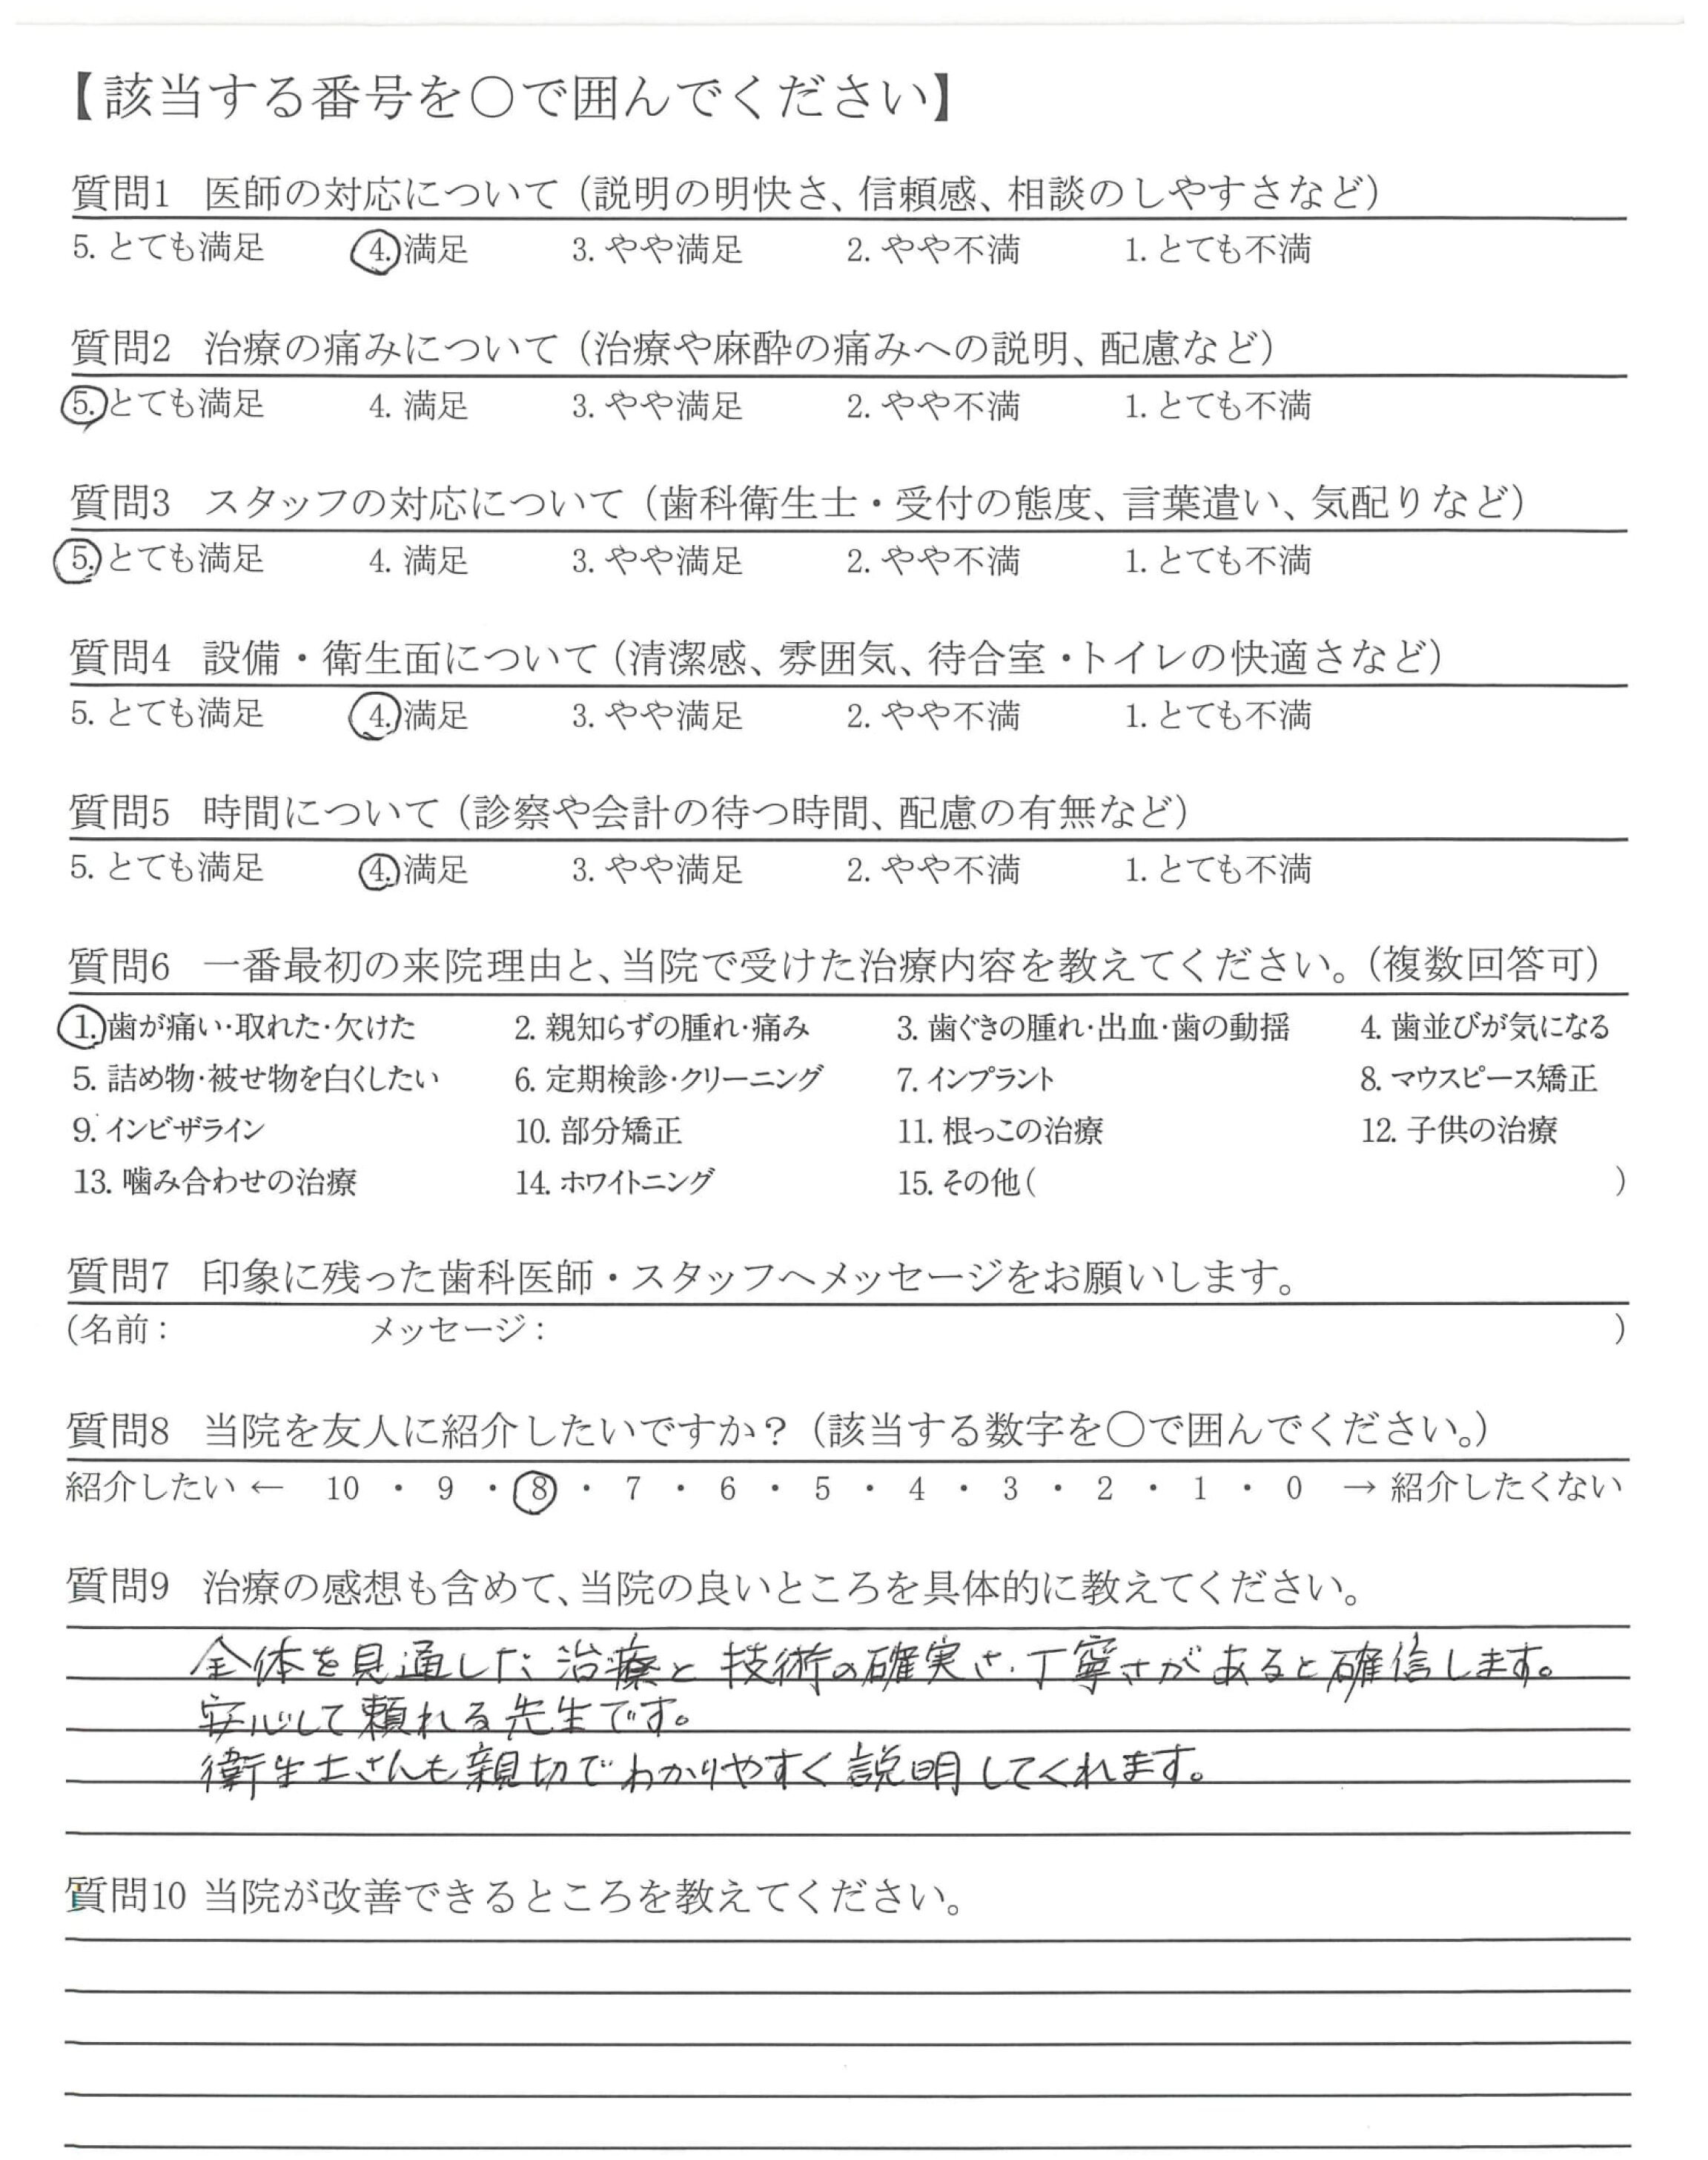 【該当する番号を〇で囲んでください】
質問1 医師の対応について（説明の明快さ、信頼感、相談のしやすさなど）
5. とても満足 4. 満足 3. やや満足 2. やや不満 1. とても不満
質問2 治療の痛みについて（治療や麻酔の痛みへの説明、配慮など）
5. とても満足 4. 満足 3. やや満足 2. やや不満 1. とても不満
質問3 スタッフの対応について（歯科衛生士・受付の態度、言葉遣い、気配りなど）
5. とても満足 4. 満足 3. やや満足 2. やや不満 1. とても不満
質問4 設備・衛生面について（清潔感、雰囲気、待合室・トイレの快適さなど）
5. とても満足 4. 満足 3. やや満足 2. やや不満 1. とても不満
質問5 時間について（診察や会計の待つ時間、配慮の有無など）
5. とても満足 4. 満足 3. やや満足 2. やや不満 1. とても不満
質問6 一番最初の来院理由と、当院で受けた治療内容を教えてください。（複数回答可）
1. 歯が痛い・取れた・欠けた 2. 親知らずの腫れ・痛み 3. 歯ぐきの腫れ・出血・歯の動揺 4. 歯並びが気になる
5. 詰め物・被せ物を白くしたい 6. 定期検診・クリーニング 7. インプラント 8. マウスピース矯正
9. インビザライン 10. 部分矯正 11. 根っこの治療 12. 子供の治療
13. 噛み合わせの治療 14. ホワイトニング 15. その他（ ）
質問7 印象に残った歯科医師・スタッフへメッセージをお願いします。
（名前： メッセージ： ）
質問8 当院を友人に紹介したいですか？（該当する数字を〇で囲んでください。）
紹介したい ← 10 ・ 9 ・ 8 ・ 7 ・ 6 ・ 5 ・ 4 ・ 3 ・ 2 ・ 1 ・ 0 → 紹介したくない
質問9 治療の感想も含めて、当院の良いところを具体的に教えてください。
全体を見通した治療と技術の確実さ、丁寧さがあると確信します。
安心して頼れる先生です。
衛生士さんも親切でわかりやすく説明してくれます。
質問10 当院が改善できるところを教えてください。